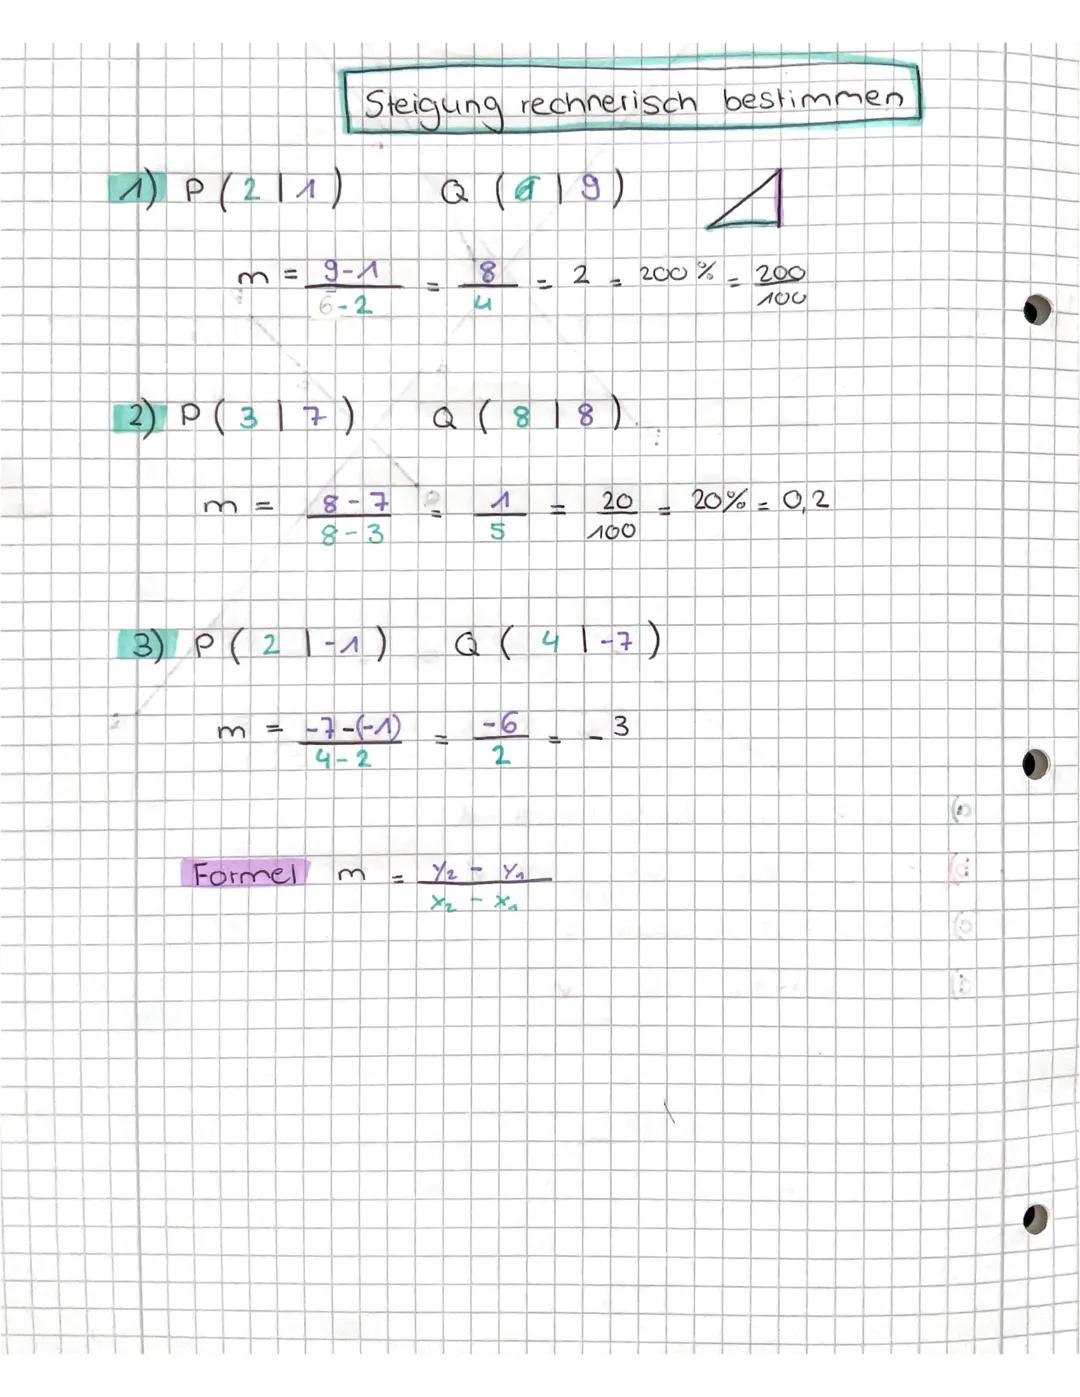 Steigung rechnerisch bestimmen
1) P ( 2 | 1 ) Q ( 6 | 9 )
m = 9-1 / 6-2 = 8 / 4 = 2 = 200 % = 200 / 100
2) P ( 3 | 7 ) Q ( 8 | 8 )
m = 8-7 / 8-3 = 1 / 5 = 20 / 100 = 20% = 0,2
3) P ( 2 | -1 ) Q ( 4 | -7 )
m = -7-(-1) / 4-2 = -6 / 2 = - 3
Formel m = y₂ - y₁ / x₂ - x₁